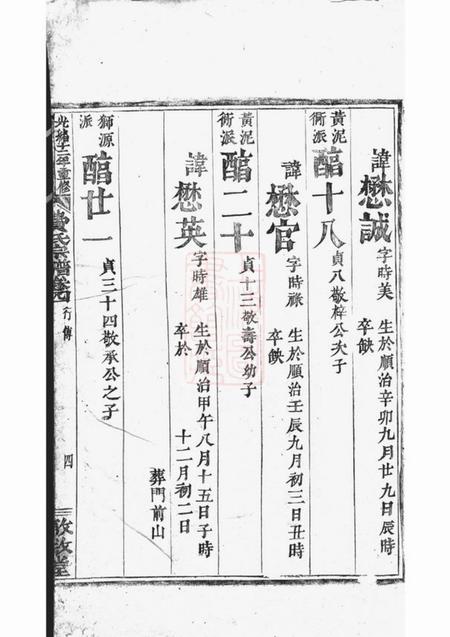 諱懋誠字時美 生於順治辛卯九月廿九日辰時
卒缺
黃泥衕派 醕十八 貞八敬梓公次子
諱懋官字時祿 生於順治壬辰九月初三日丑時
卒缺
黃泥衕派 醕二十 貞十三敬壽公幼子
諱懋英字時雄 生於順治甲午八月十五日子時
卒於 十二月初二日
葬門前山
獅源派 醕廿一 貞三十四敬承公之子
光緒 年重修 氏宗譜 行傳 四 敘堂